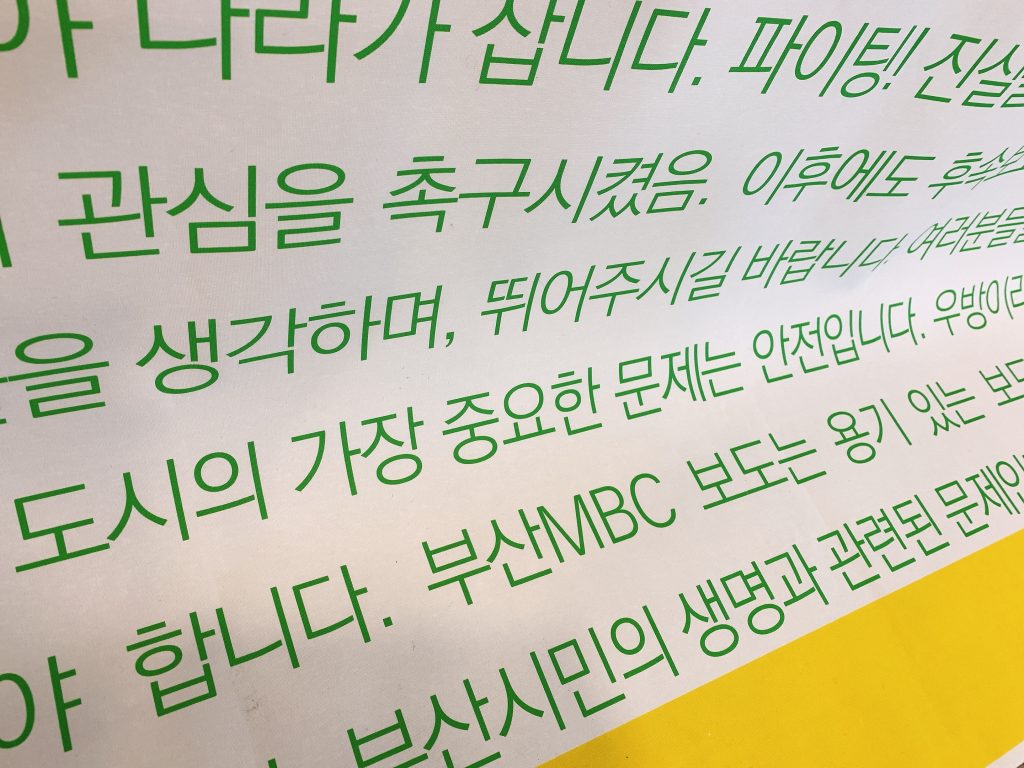 나라가 삽니다. 파이팅! 진실을
관심을 촉구시켰음. 이후에도 후속보
을 생각하며, 뛰어주시길 바랍니다 여러분들
도시의 가장 중요한 문제는 안전입니다. 우방이라
야 합니다. 부산MBC 보도는 용기 있는 보도
부산시민의 생명과 관련된 문제인